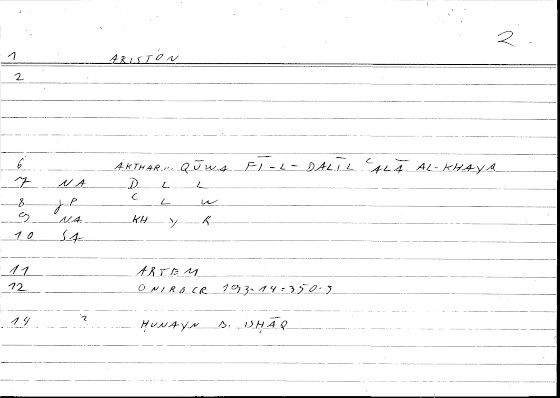 2
1 ARISTON
2
6 AKTHAR.. QŪWA FĪ-L-DALĪL ʿALĀ AL-KHAYR
7 NA D L L
8 JP ʿ L W
9 NA KH Y R
10 SA
11 ARTEM
12 ONIROCR 193-14=350-5
14 ? ḤUNAYN B. ISḤĀQ